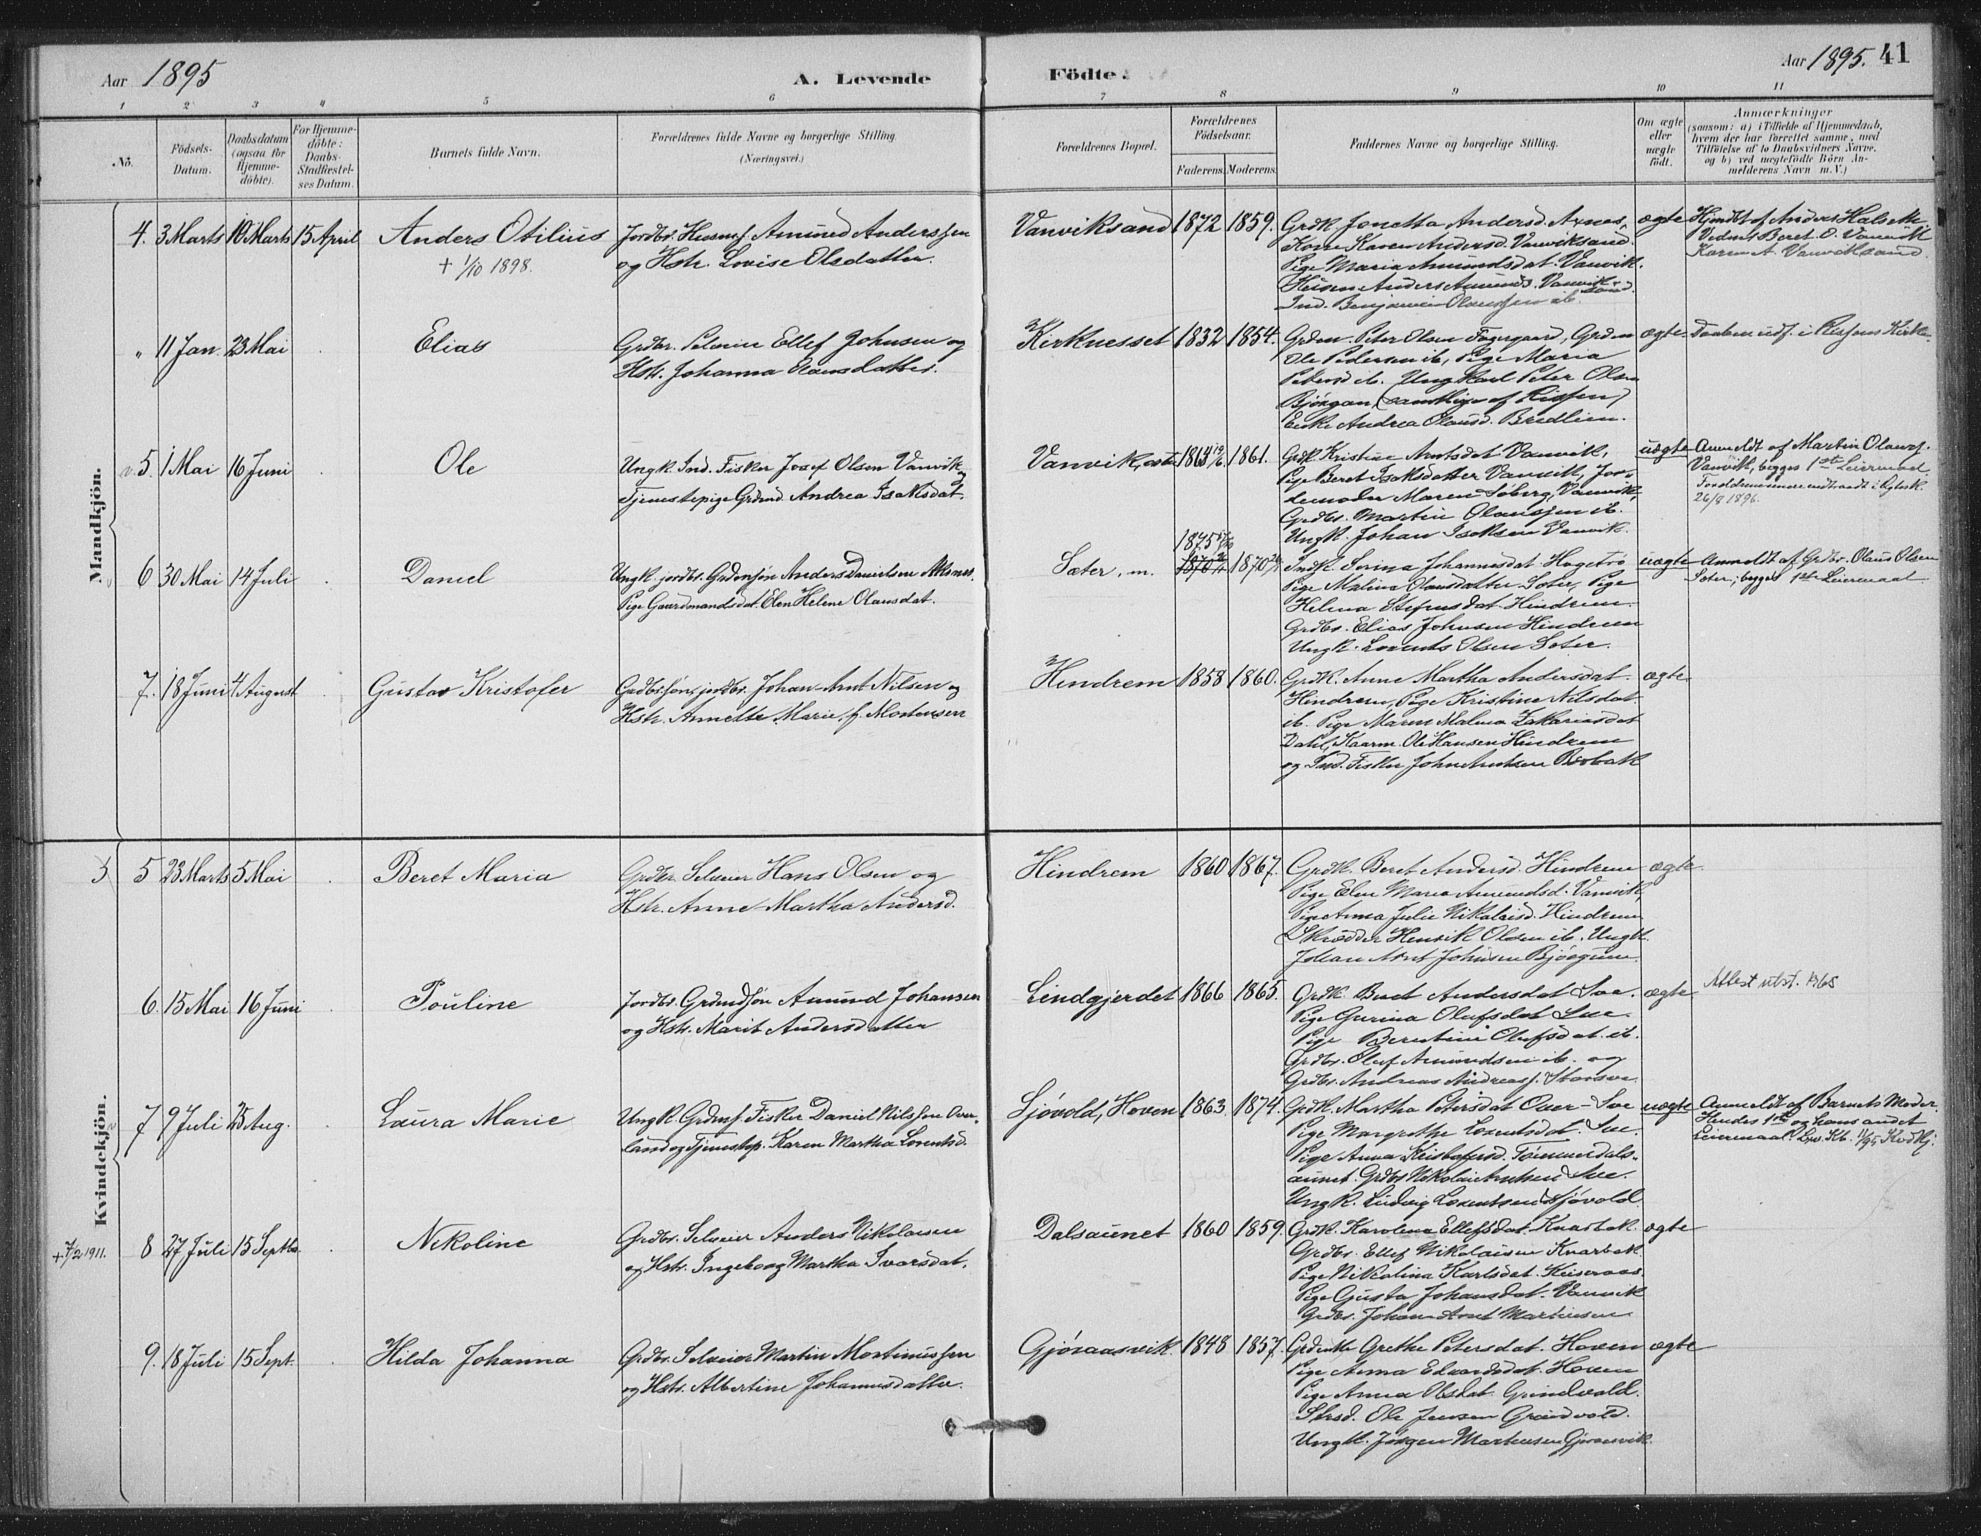 Aar 1895
A. Levende Födte.
Aar 1895. 41
1 2 3 4 5 6 7 8 9 10 11
No.
Födsels-Datum.
Daabsdatum (ogsaa for Hjemmedöbte).
For Hjemmedöbte: Daabs-Stadfæstelses Datum.
Barnets fulde Navn.
Forældrenes fulde Navne og borgerlige Stilling (Næringsvei.)
Forældrenes Bopæl.
Forældrenes Födselsaar.
Faderens. Moderens.
Faddernes Navne og borgerlige Stilling.
Om ægte eller uægte födt.
Anmærkninger
(saasom: a) i Tilfælde af Hjemmedaab,
hvem der har forrettet samme, med
Tilföielse af to Daabsvidners Navne.
og b) ved uægtefödte Börn Anmelderens
Navn m.V.)
Mandkjön.
4. 3 Marts 10 Marts 15 April Anders Otilius
+ 1/10 1898.
Jordbr. Husmf. Amund Anderssen
og Hstr. Lovise Olsdatter.
Vanviksand 1872 1859.
Grdk. Jonetta Andersd. Axnes,
Kone Karen Andersd. Vanviksand.
Pige Maria Amundsdat. Vanvik.
Husm Anders Amunds. Vanviksand.
Ind. Benjamin Olaussen ib.
ægte
Hjmdt af Anders Halsetk
Vidner Beret O. Vanvik
Karen A. Vanviksand.
" 11 Jan. 23 Mai Elias
Grdbr. Selveier Ellef Johnsen og
Hstr. Johanna Olausdatter.
Kirknesset 1832 1854.
Grdm. Peter Olsen Fagergaard, Grdm
Ole Pedersen ib, Pige Maria
Petersd ib. Ungkarl Peter Olsen
Bjørgan, (samtlige af Rissen)
Enke Andrea Olausd. Bredlien.
ægte Daaben udf. i Rissens Kirke.
5. 1 Mai 16 Juni Ole
Ungk. Ind. Fisker Josef Olsen Vanvik og
Tjenestepige Grdmd. Andrea Isaksdat.
Vanvik, østre 1861.
Grdk. Kristine Arntsdat Vanvik,
Pige Beret Isaksdatter Vanvik, Jordemoder
Maren Søberg, Vanvik,
Grdbr. Martin Olaussen ib.
Ungk. Johan Isaksen Vanvik.
uægte
Anmeldt af Martin Olausf.
Vanvik, begges 1ste Leiermaal
26/8 1896.
6 30 Mai 14 Juli Daniel
Ungk. jordbr. Grdmsøn Anders Danielsen Aksnes.
Pige Gaardmandsdat. Elen Helene Olausdat.
Sæter, m. 1875 1870
Indk. Serina Johannesdat Hagetrø
Pige Malina Olausdatter Sæter, Pige
Helena Stefensdat. Hindrem.
Grdbr. Elias Johnsen Hindrem
Ungk. Lorents Olsen Sæter.
uægte
Anmeldt af Grdbr. Olaus Olsen
Sæter; begges 1ste Leiermaal.
7. 18 Juni 4 August Gustav Kristofer
Grdbr.søn, jordbr. Johan Arnt Nilsen og
Hstr. Annette Marie f. Mortensen
Hindrem 1858 1860.
Grdk. Anne Martha Andersdat.
Hindrem, Pige Kristine Nilsdat
ib. Pige Maren Malena Zakariasdat
Dahl, Kaarm. Ole Hansen Hindrem
og Ind. Fisker John Arntsen Rabak
ægte
Kvindekjön.
5 23 Marts 5 Mai Beret Maria
Grdbr. Selveier Hans Olsen og
Hstr. Anne Martha Andersd.
Hindrem 1860 1867.
Grdk. Beret Andersd. Hindrem
Pige Elen Maria Amundsd. Vanvik,
Pige Anna Julie Nikolaisd. Hindrem
Skrædder Henrik Olsen ib. Ungk.
Johan Arnt Johnsen Bjørgum.
ægte
6. 15 Mai 16 Juni Pouline
Jordbr. Grdmdsøn Amund Johansen
og Hstr. Marit Andersdatter
Lindgjerdet 1866 1865.
Grdk. Beret Andersdat Sve.
Pige Gurina Olufsdat Sve.
Pige Berntine Olufsdat. ib.
Grdbr. Oluf Amundsen ib. og
Grdbr. Andreas Andreasf. Storsve
ægte Attest utst. 1965
7 9 Juli 25 Aug. Laura Marie
Ungk. Grdmsf. Fisker Daniel Nilssen Overland
og Tjenestep. Karen Martha Lorentsd.
Sjøvold, Hoven 1863. 1874.
Grdk. Martha Petersdat Over-Sve
Pige Margrethe Lorentsdat. Sve.
Pige Anna Kristofersd. Tømmerdalsaunet.
Grdbr Nikolai Arntsen Sve.
Ungk. Ludvig Lorentsen Sjøvold.
uægte
Anmeldt af Barnets Moder.
Hendes 1ste og hans andet
Leiermaal.
+ 7/2 1911. 8 27 Juli 15 Septbr. Nikoline
Grdbr. Selveier Anders Nikolaisen
og Hstr. Ingeborg Martha Ivarsdat.
Dalsaunet 1860 1859.
Grdk. Karolina Ellefsdat. Knarbak.
Grdbr. Ellef Nikolaisen Knarbak.
Pige Nikolina Karlsdat. Keiseraas.
Pige Gusta Johansdat. Vanvik
Grdbr. Johan Arnt Martinsen
ægte
9. 18 Juli 15 Sept. Hilda Johanna
Grdbr. Selveier Martin Mortinussen
og Hstr. Albertine Johannesdatter.
Gjøraasvik 1848 1857.
Grdenke Grethe Petersdat. Hoven
Pige Anna Edvardsdat. Hoven
Pige Anna Olsdat. Grindvold.
Strsd. Ole Jensen Grindvold.
Ungk. Jørgen Martinsen Gjøraasvik.
ægte